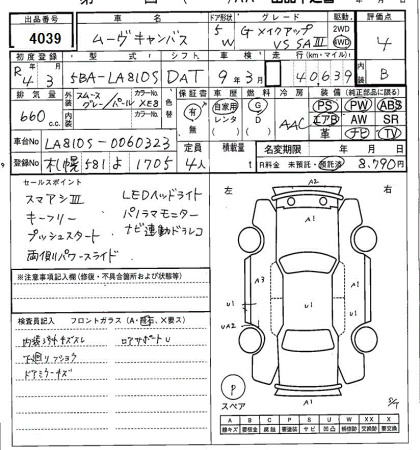 出品番号 車名 ドア形状 グレード 駆動 評価点
4039 ムーヴキャンバス 5W GメイクアップVS SAⅢ 2WD 4WD 4
初度登録 型式 シフト 車検 走行(Km・マイル) 内装
R4 3 5BA-LA810S DAT 9年3月 40,639 B
排気量 外装 カラー カラーNo. 色替 車歴 燃料 冷房 装備(純正部品に限る)
660 c.c. パール XE8 保証書 有 無 自家用 レンタ D G D AAC PS PW ABS
エアB AW SR
革 ナビ TV
定員 4人 積載量 t
車台No LA810S-0060323
名変期限 年 月 日
登録No 札幌 581 よ 1705
R料金 未預託・預託済 8,790円
セールスポイント
スマアシⅢ LEDヘッドライト
キーフリー パノラマモニター
プッシュスタート ナビ連動ドラレコ
両側パワースライド
※注意事項記入欄(修復・不具合箇所および状態等)
検査員記入 フロントガラス(A・飛石、X要ス)
ドアミラーキズ
左 右
A2
A1
A3
A1
U1
U1
UA2
A1
P
スペア
A B C P S U W X XX
線キズ 要板金 腐食 要塗装 サビ 凹凸 補修跡 要交換 交換跡